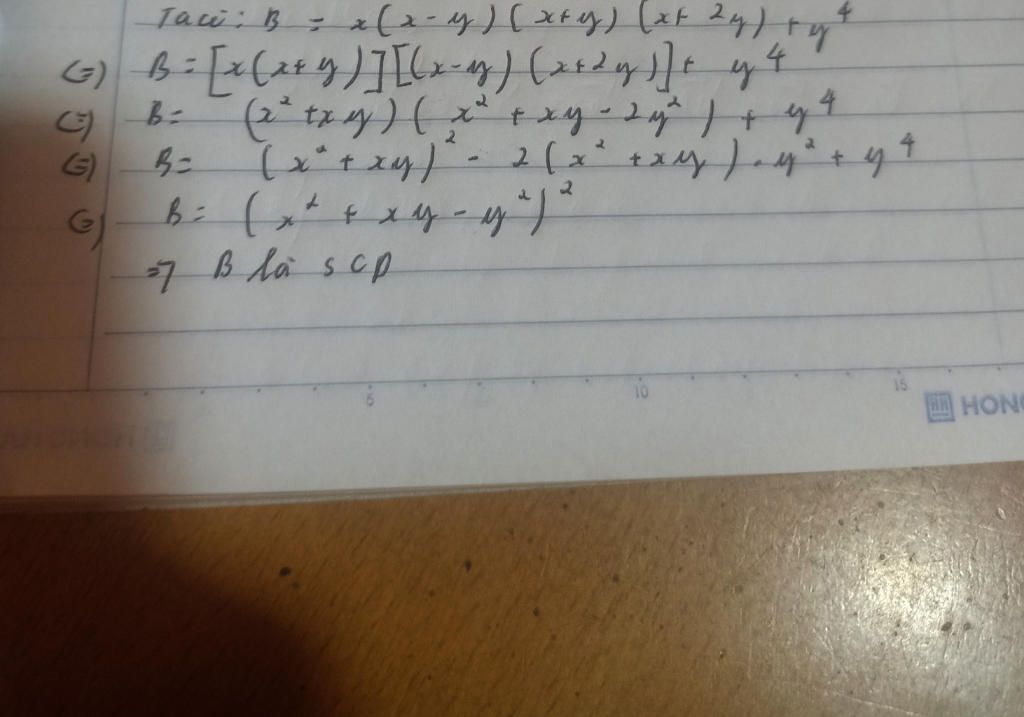 Ta có: B = x(x-y)(x+y)(x+2y)+y⁴
(=) B=[x(x+y)][(x-y)(x+2y)]+ y⁴
(=) B= (x²+xy)(x²+xy-2y²)+y⁴
(=) B= (x²+xy)²-2(x²+xy).y²+y⁴
(=) B= (x²+xy-y²)²
=> B là SCP
5 10 15
HONG